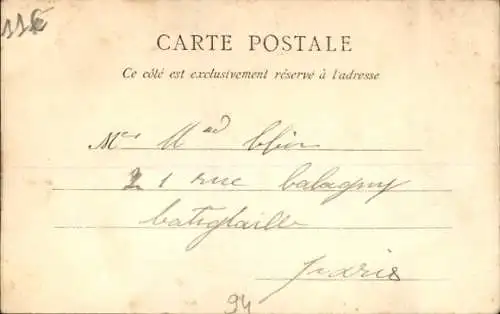 11€
CARTE POSTALE
Ce côté est exclusivement réservé à l'adresse
M
21 rue balagny
batignaille
Paris
94